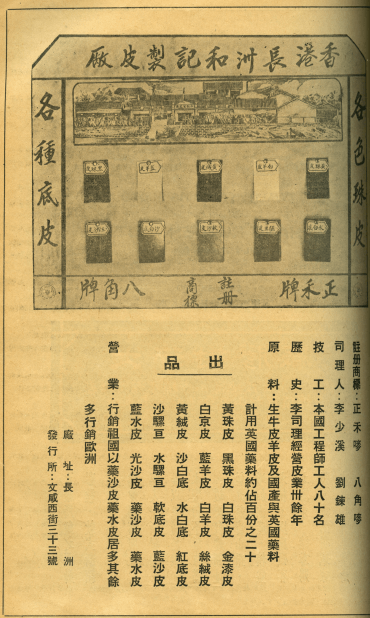 香港長洲和記製皮廠
各色珠皮
各種底皮
正禾牌
註册
商標
八角牌
註册商標：正禾嘜　八角嘜
司理人：李少溪　劉錬雄
技工：本國工程師工人八十名
歷史：李司理經營皮業卅餘年
原料：生牛皮羊皮及國產與英國藥料
計用英國藥料約佔百份之二十
出品
黃珠皮　黑珠皮　白珠皮　金漆皮
白京皮　藍羊皮　白羊皮　絲絨皮
黃絨皮　沙白底　水白底　紅底皮
沙騾亘　水騾亘　軟底皮　藍沙皮
藍水皮　光沙皮　藥沙皮　藥水皮
營業：行銷祖國以藥沙皮藥水皮居多其餘
多行銷歐洲
廠址：長洲
發行所：文咸西街三十三號